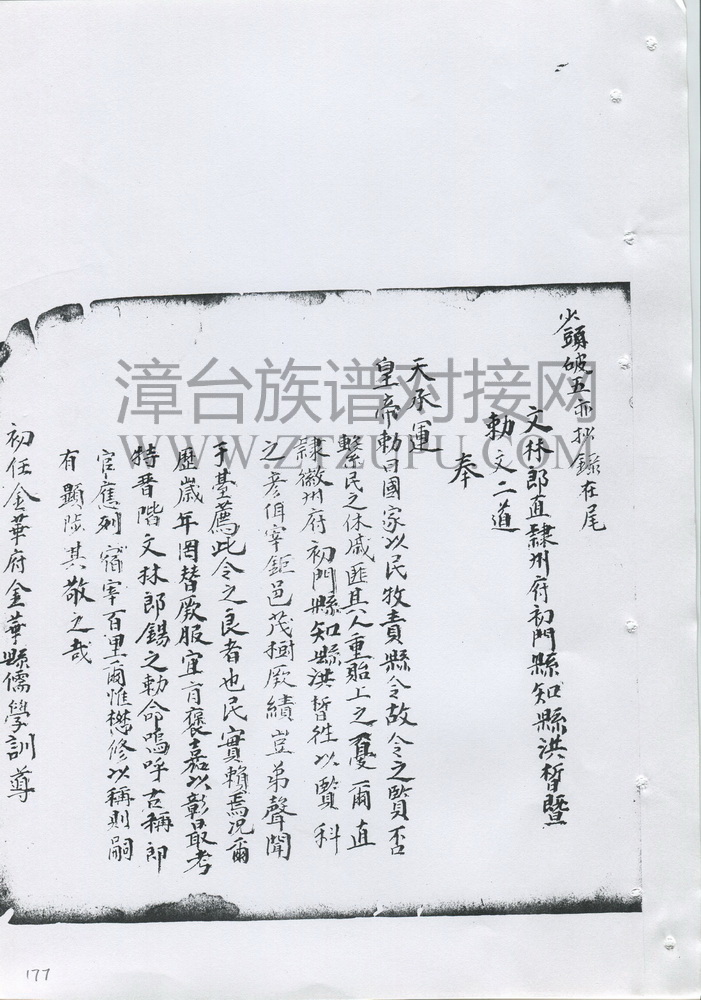 頭破五亦抄錄在尾
文林郎直隸州府初門縣知縣洪晳暨
勅文二道
奉
天承運
皇帝勅曰國家以民牧責縣令故令之賢否
繫民之休戚匪其人重貽上之憂爾直
隸徽州府初門縣知縣洪晳徃以賢科
之彥佴宰鉅邑茂樹厥績豈弟聲聞
于臺薦此令之良者也民實賴焉况爾
歷歲年罔替厥服宜有褒嘉以彰最考
特晋階文林郎錫之勅命嗚呼古稱郎
官應列宿宰百里爾惟懋修以稱則嗣
有顯陟其敬之哉
初任金華府金華縣儒學訓導
漳台族谱对接网
WWW.ZTZUPU.COM
177